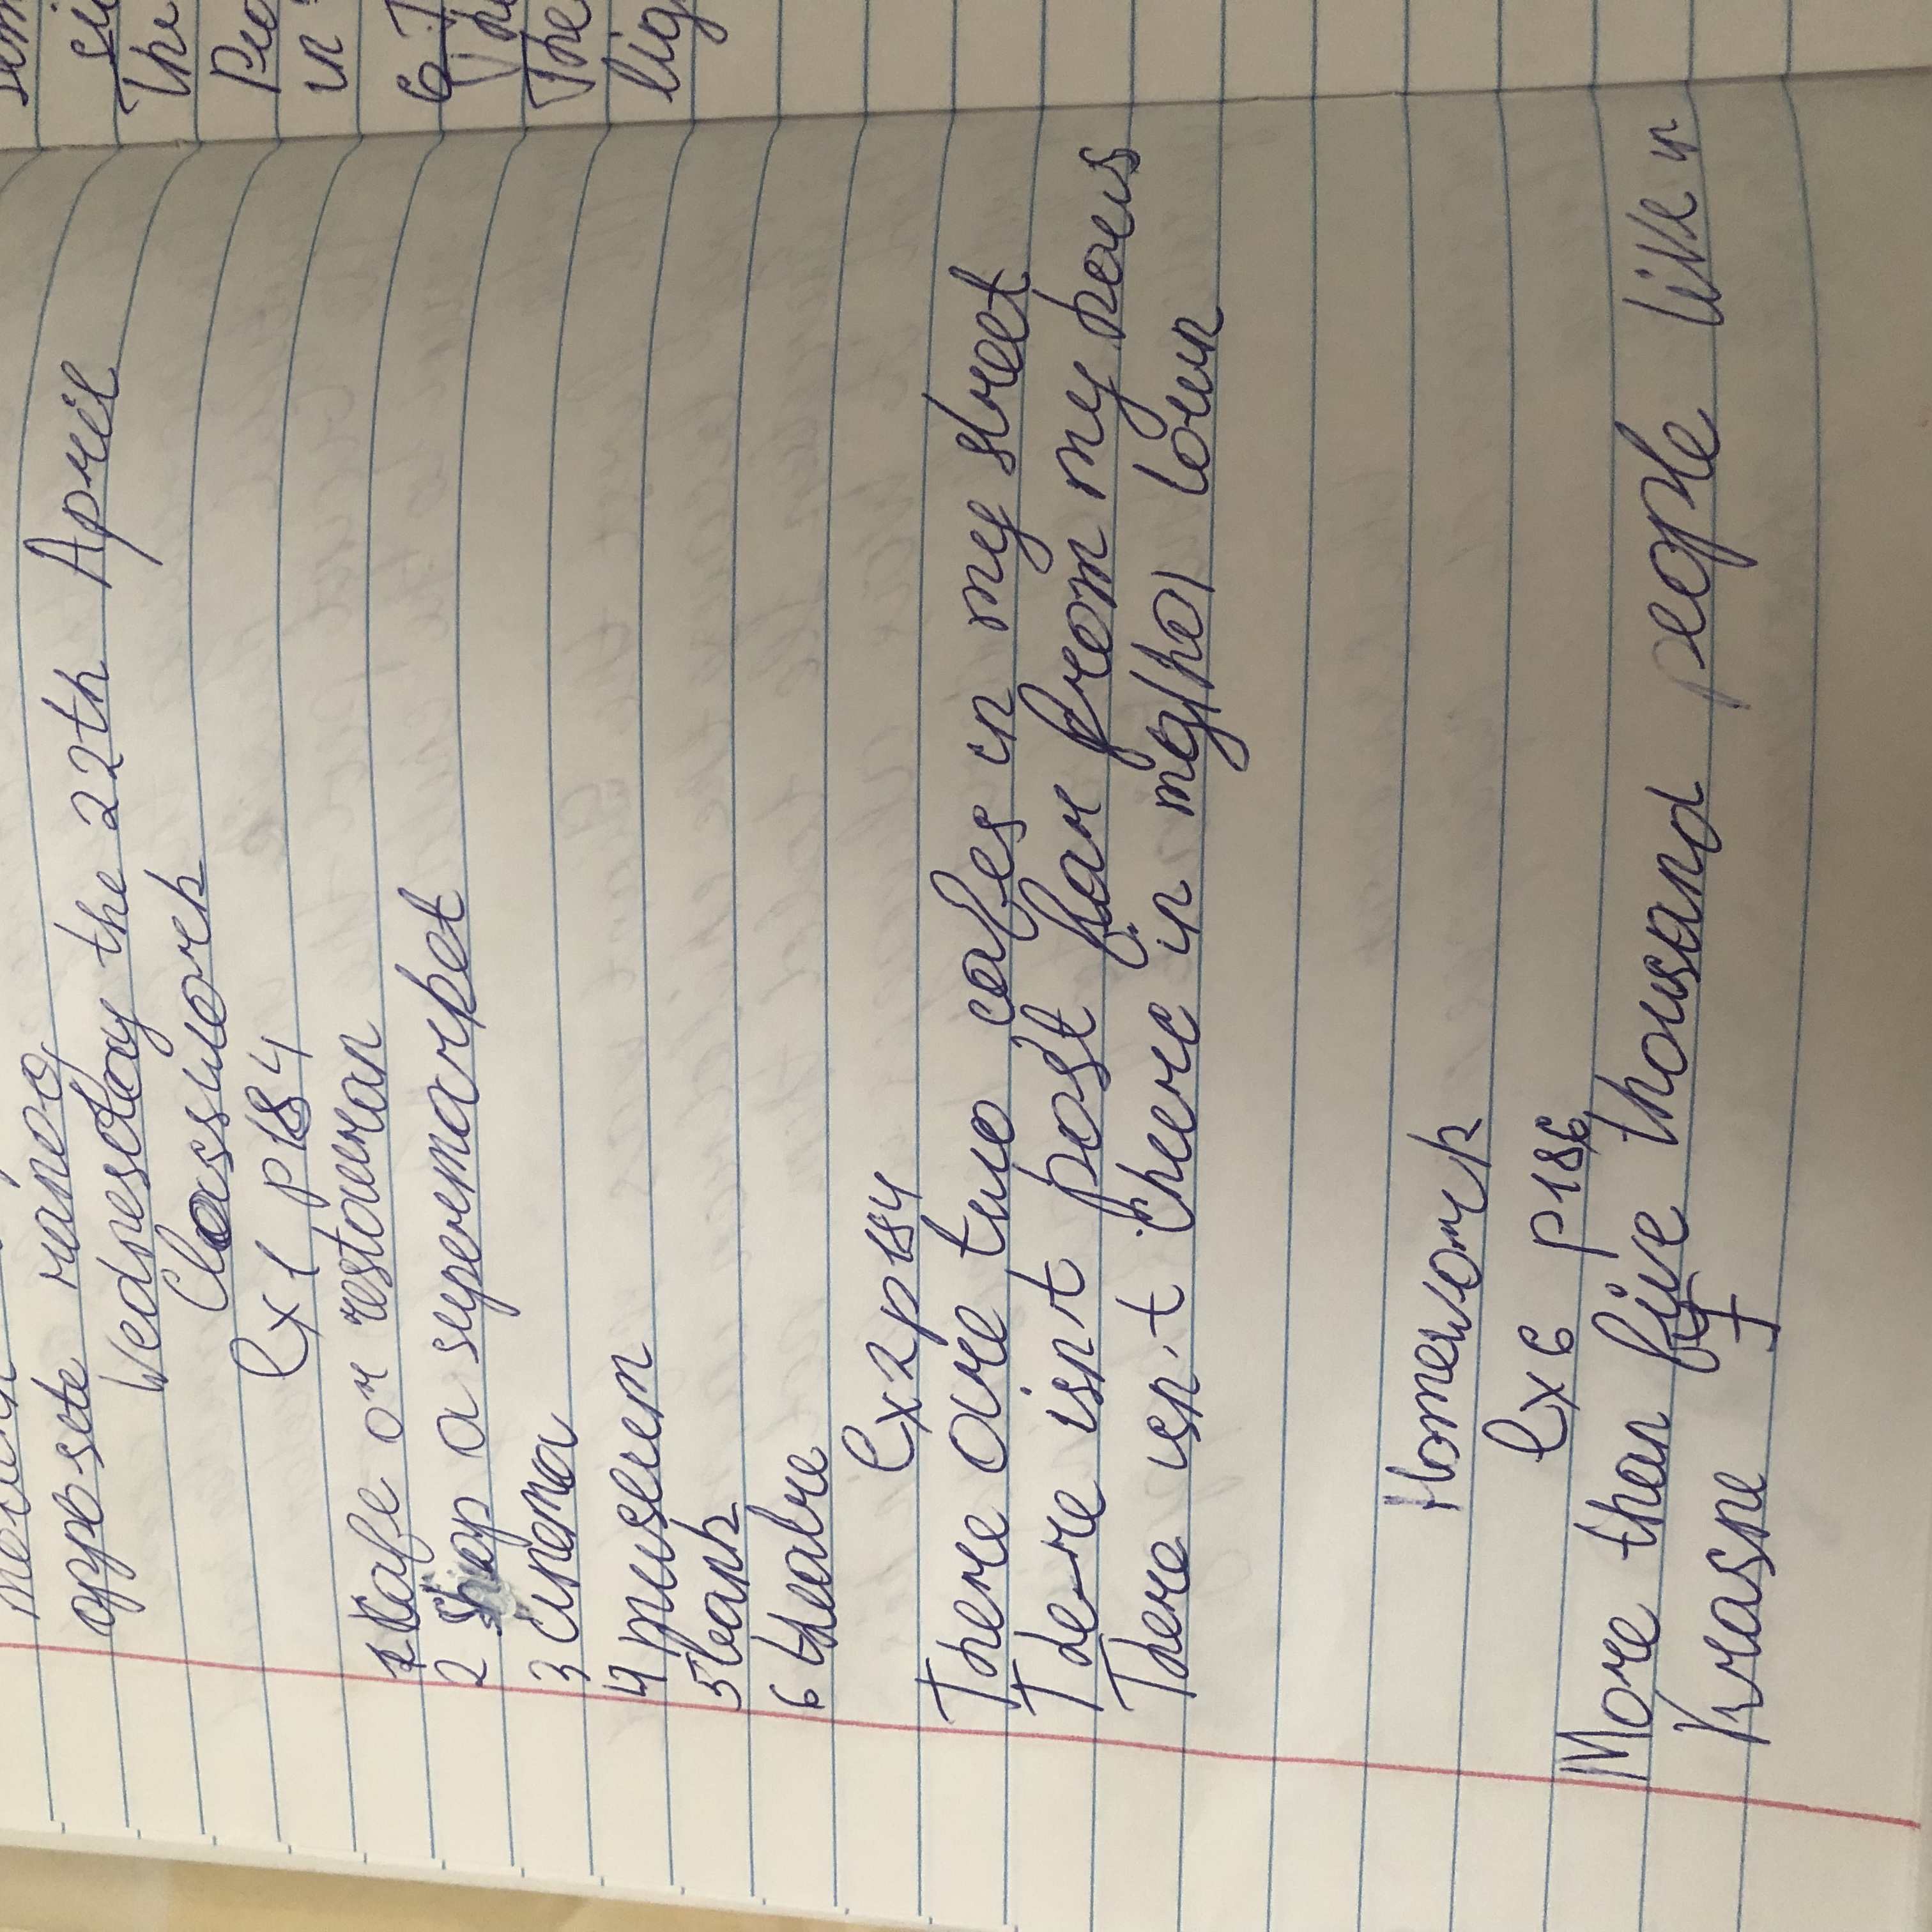 opposite
Wednesday the 22th April
Classwork
ex 1 p 184
1 kafe or restouran
2 Shop a supermarket
3 cinema
4 museum
5 bank
6 theatre
ex 2 p 184
There are two cafes in my street
There isnt post far from my hous
There isn't there in my town
Homework
ex 6 p 186
More then five thousand people live in
Krasne
The
6
The
lig